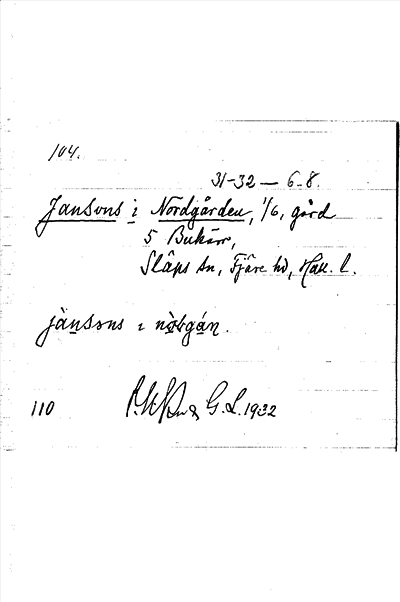 104.
31-32 — 6-8.
Jansons i Nordgården, 1/6, gård
5 Bukärr,
Släps sn, Fjäre hd, Hall. l.
jänsons i
110
G. L. 1932